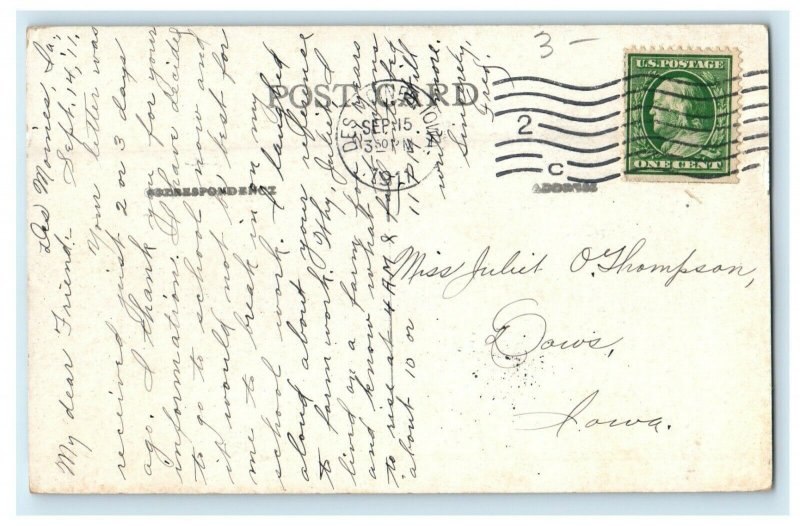 Des Moines, Ia.
Sept. 14, '11.
My dear Friend:-
Your letter was
received just 2 or 3 days
ago. I thank you for your
information. I have decided
to go to school now and
it would not be best for
me to break in on my
school work. I laughed
aloud about your reference
to farm work. Why, Juliet, I
lived on a farm for years
and know what
to rise at 4 AM &
about 10 or 11 P.M. Will
write more.
Sincerely,
Fred.
POST CARD
CORRESPONDENCE
ADDRESS
DES MOINES
IOWA
SEP 15
3 30 PM
1911
2
C
3-
U.S. POSTAGE
ONE CENT
Miss Juliet O. Thompson,
Dows,
Iowa.